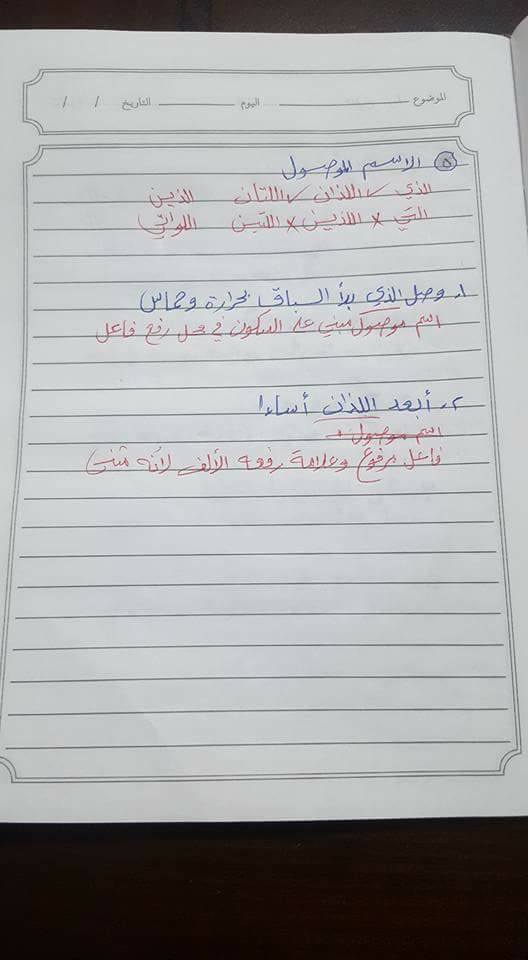 الموضوع اليوم التاريخ / /
٥ الاسم الموصول
الذي ✓ اللذان ✓ اللتان الذين
التي × اللذين × اللتين اللواتي
١. وصل الذي بدأ السباق بحرارة وحماس
اسم موصول مبني على السكون في محل رفع فاعل
٢. أبعد اللذان أساءا
اسم موصول
فاعل مرفوع وعلامة رفعه الألف لأنه مثنى